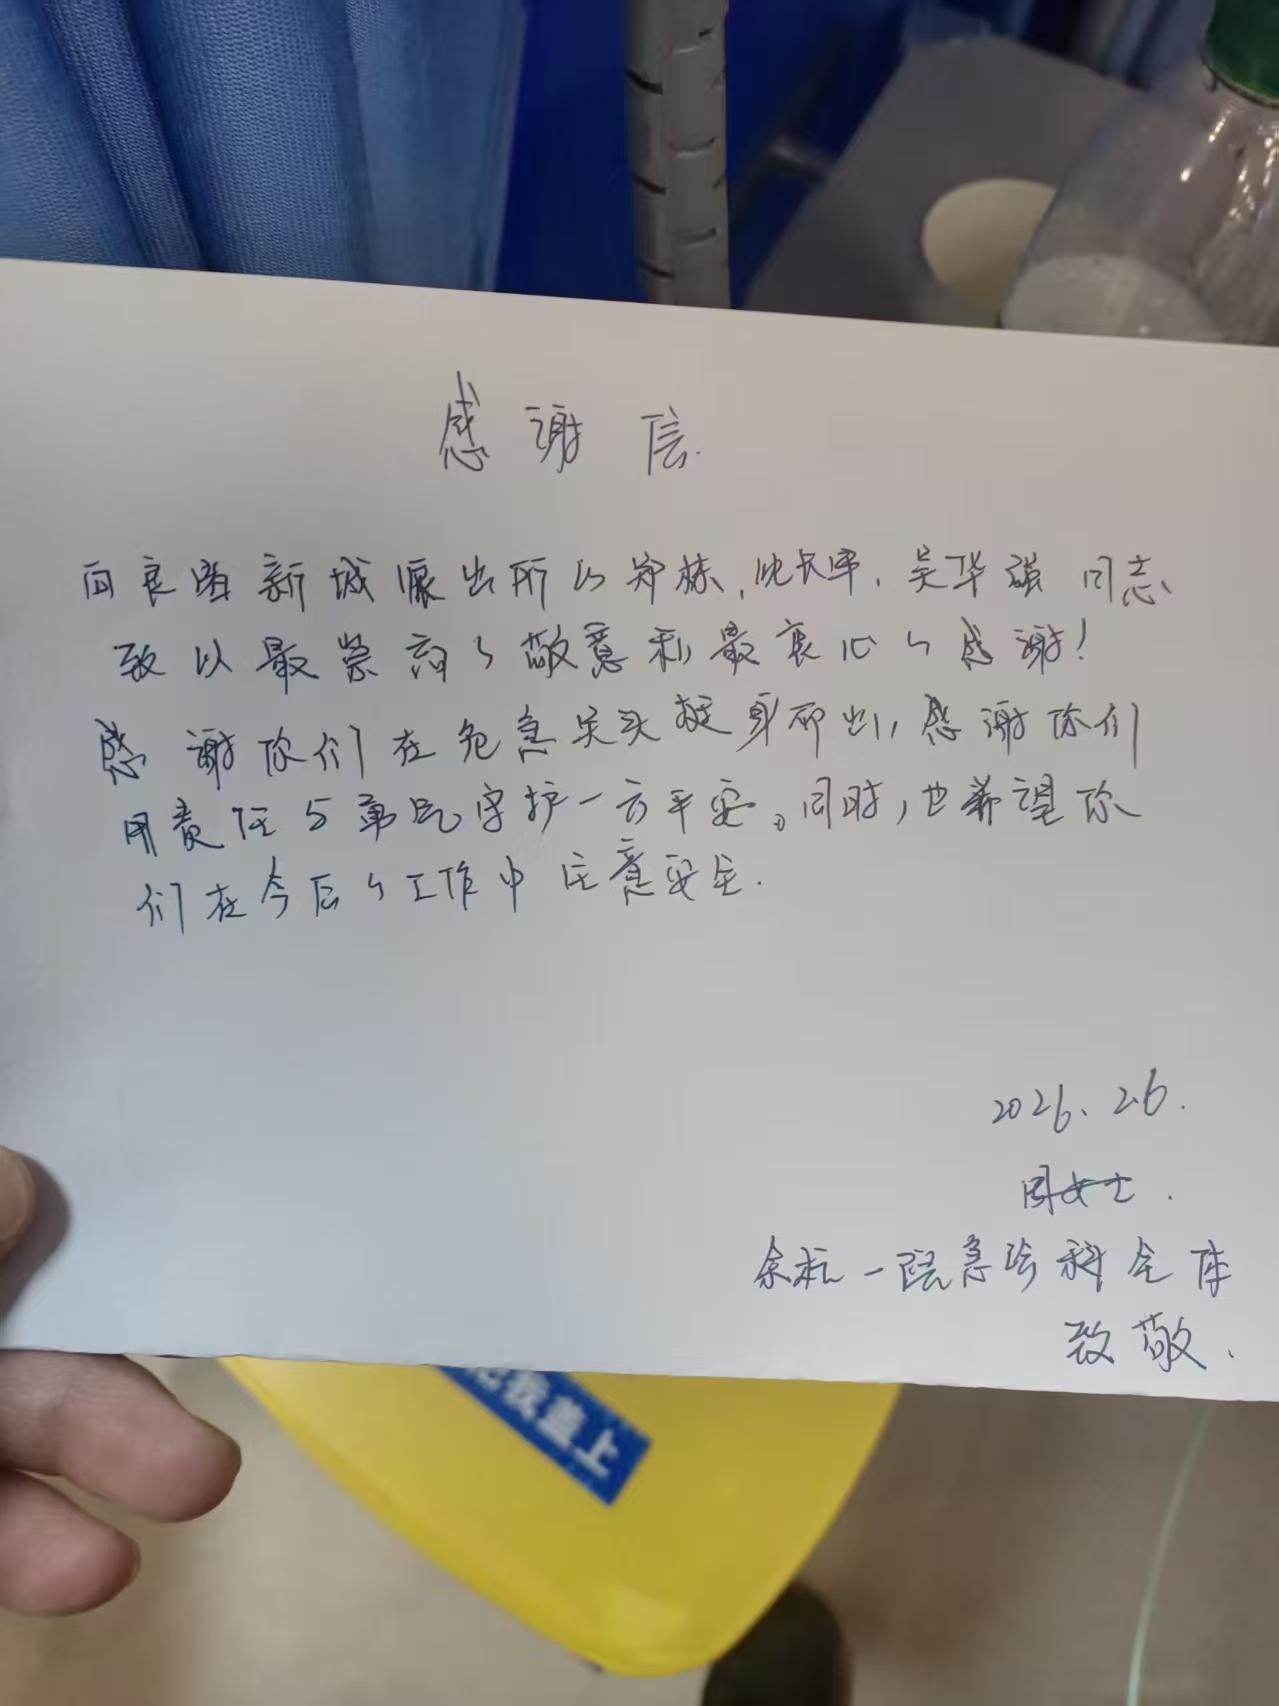 感谢信.
向良渚新城派出所的郑栋,沈长军,吴华强同志
致以最崇高的敬意和最衷心的感谢!
感谢你们在危急关头挺身而出,感谢你们
用责任与勇气守护一方平安。同时,也希望你
们在今后的工作中注意安全.
2026.2.6.
周女士.
余杭一院急诊科全体
致敬.
我盖上